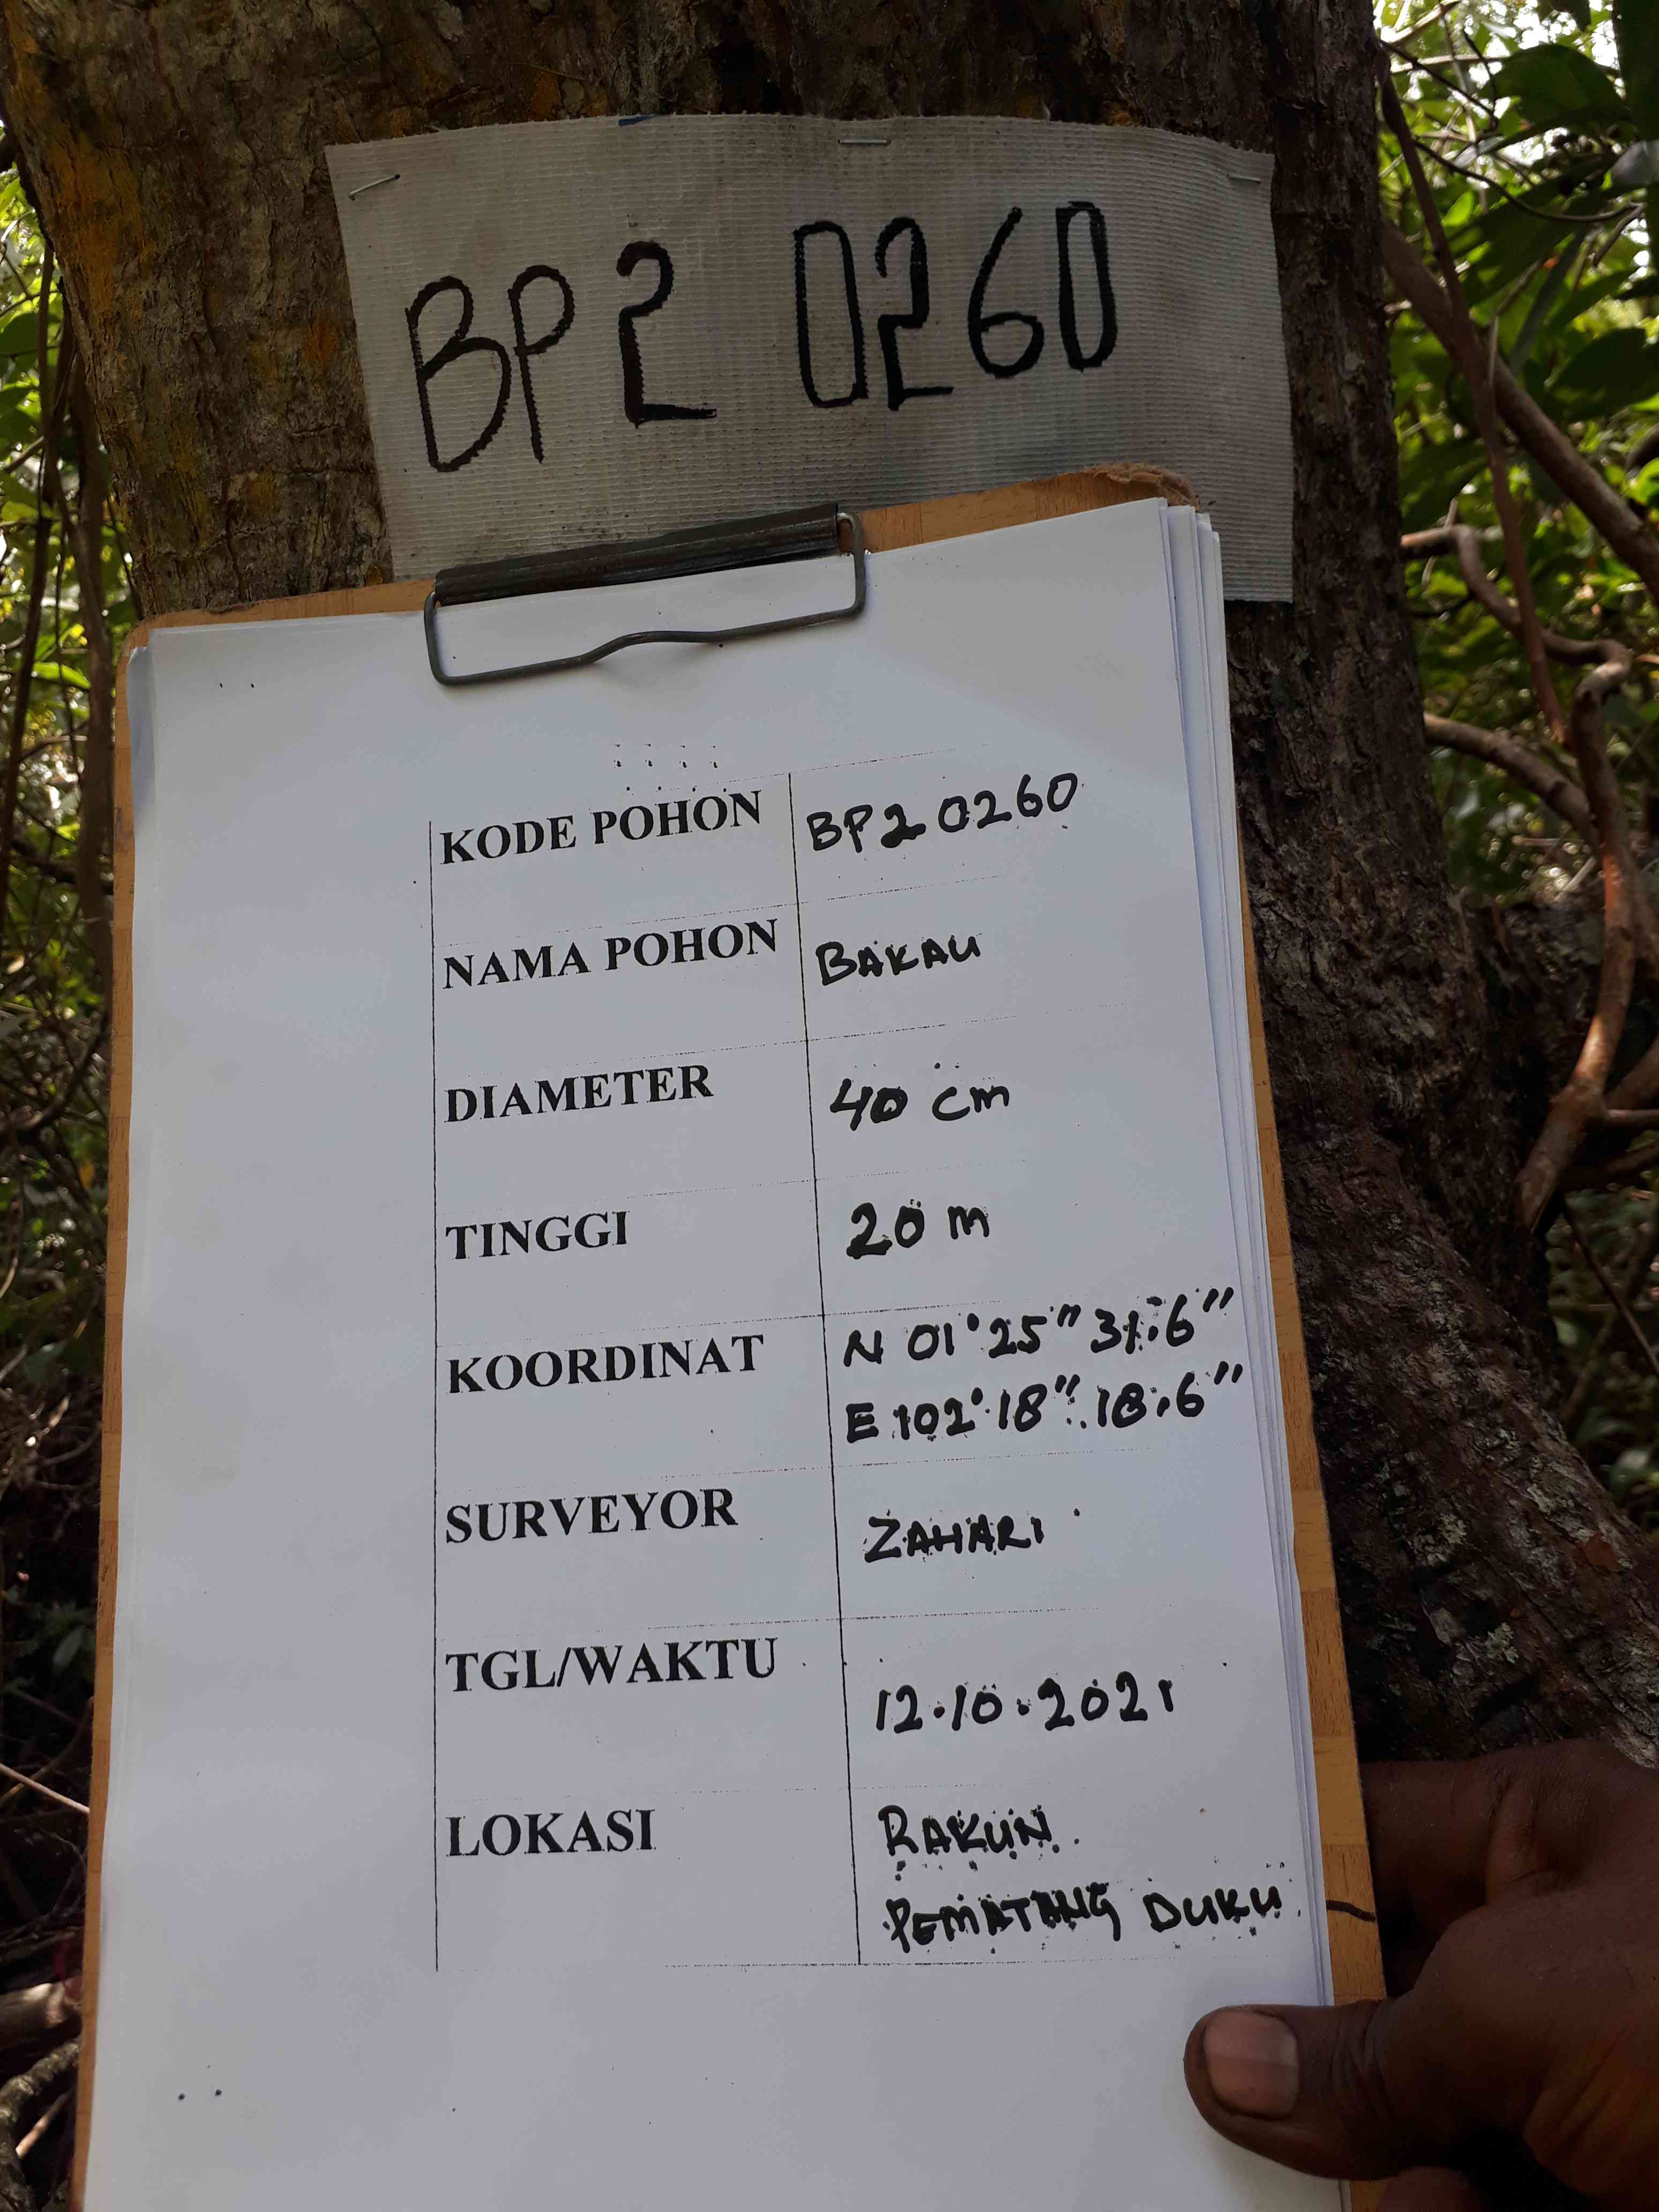 BP2 0260
KODE POHON BP2 0260
NAMA POHON BAKAU
DIAMETER 40 cm
TINGGI 20 m
KOORDINAT N 01° 25" 31.6"
E 102° 18" 18.6"
SURVEYOR ZAHARI
TGL/WAKTU 12.10.2021
LOKASI RAKUN
PEMATANG DUKU